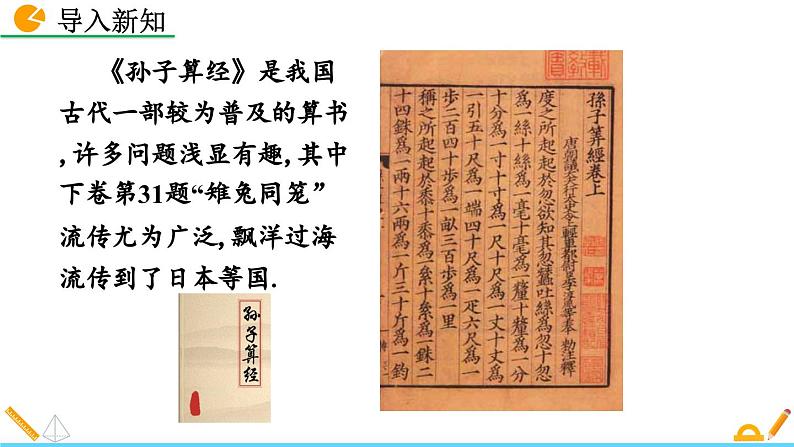 导入新知
《孙子算经》是我国
古代一部较为普及的算书
,许多问题浅显有趣,其中
下卷第31题“雉兔同笼”
流传尤为广泛,飘洋过海
流传到了日本等国.
孙子算经
孫子算經卷上
度之所起起於忽欲知其忽蠶吐絲為忽十忽
為一絲十絲為一毫十毫為一釐十釐為一分
十分為一寸十寸為一尺十尺為一丈十丈為
一引五十尺為一端四十尺為一疋六尺為一
步二百四十步為一畝三百步為一里
稱之所起起於黍十黍為一絫十絫為一銖二
十四銖為一兩十六兩為一斤三十斤為一鈞